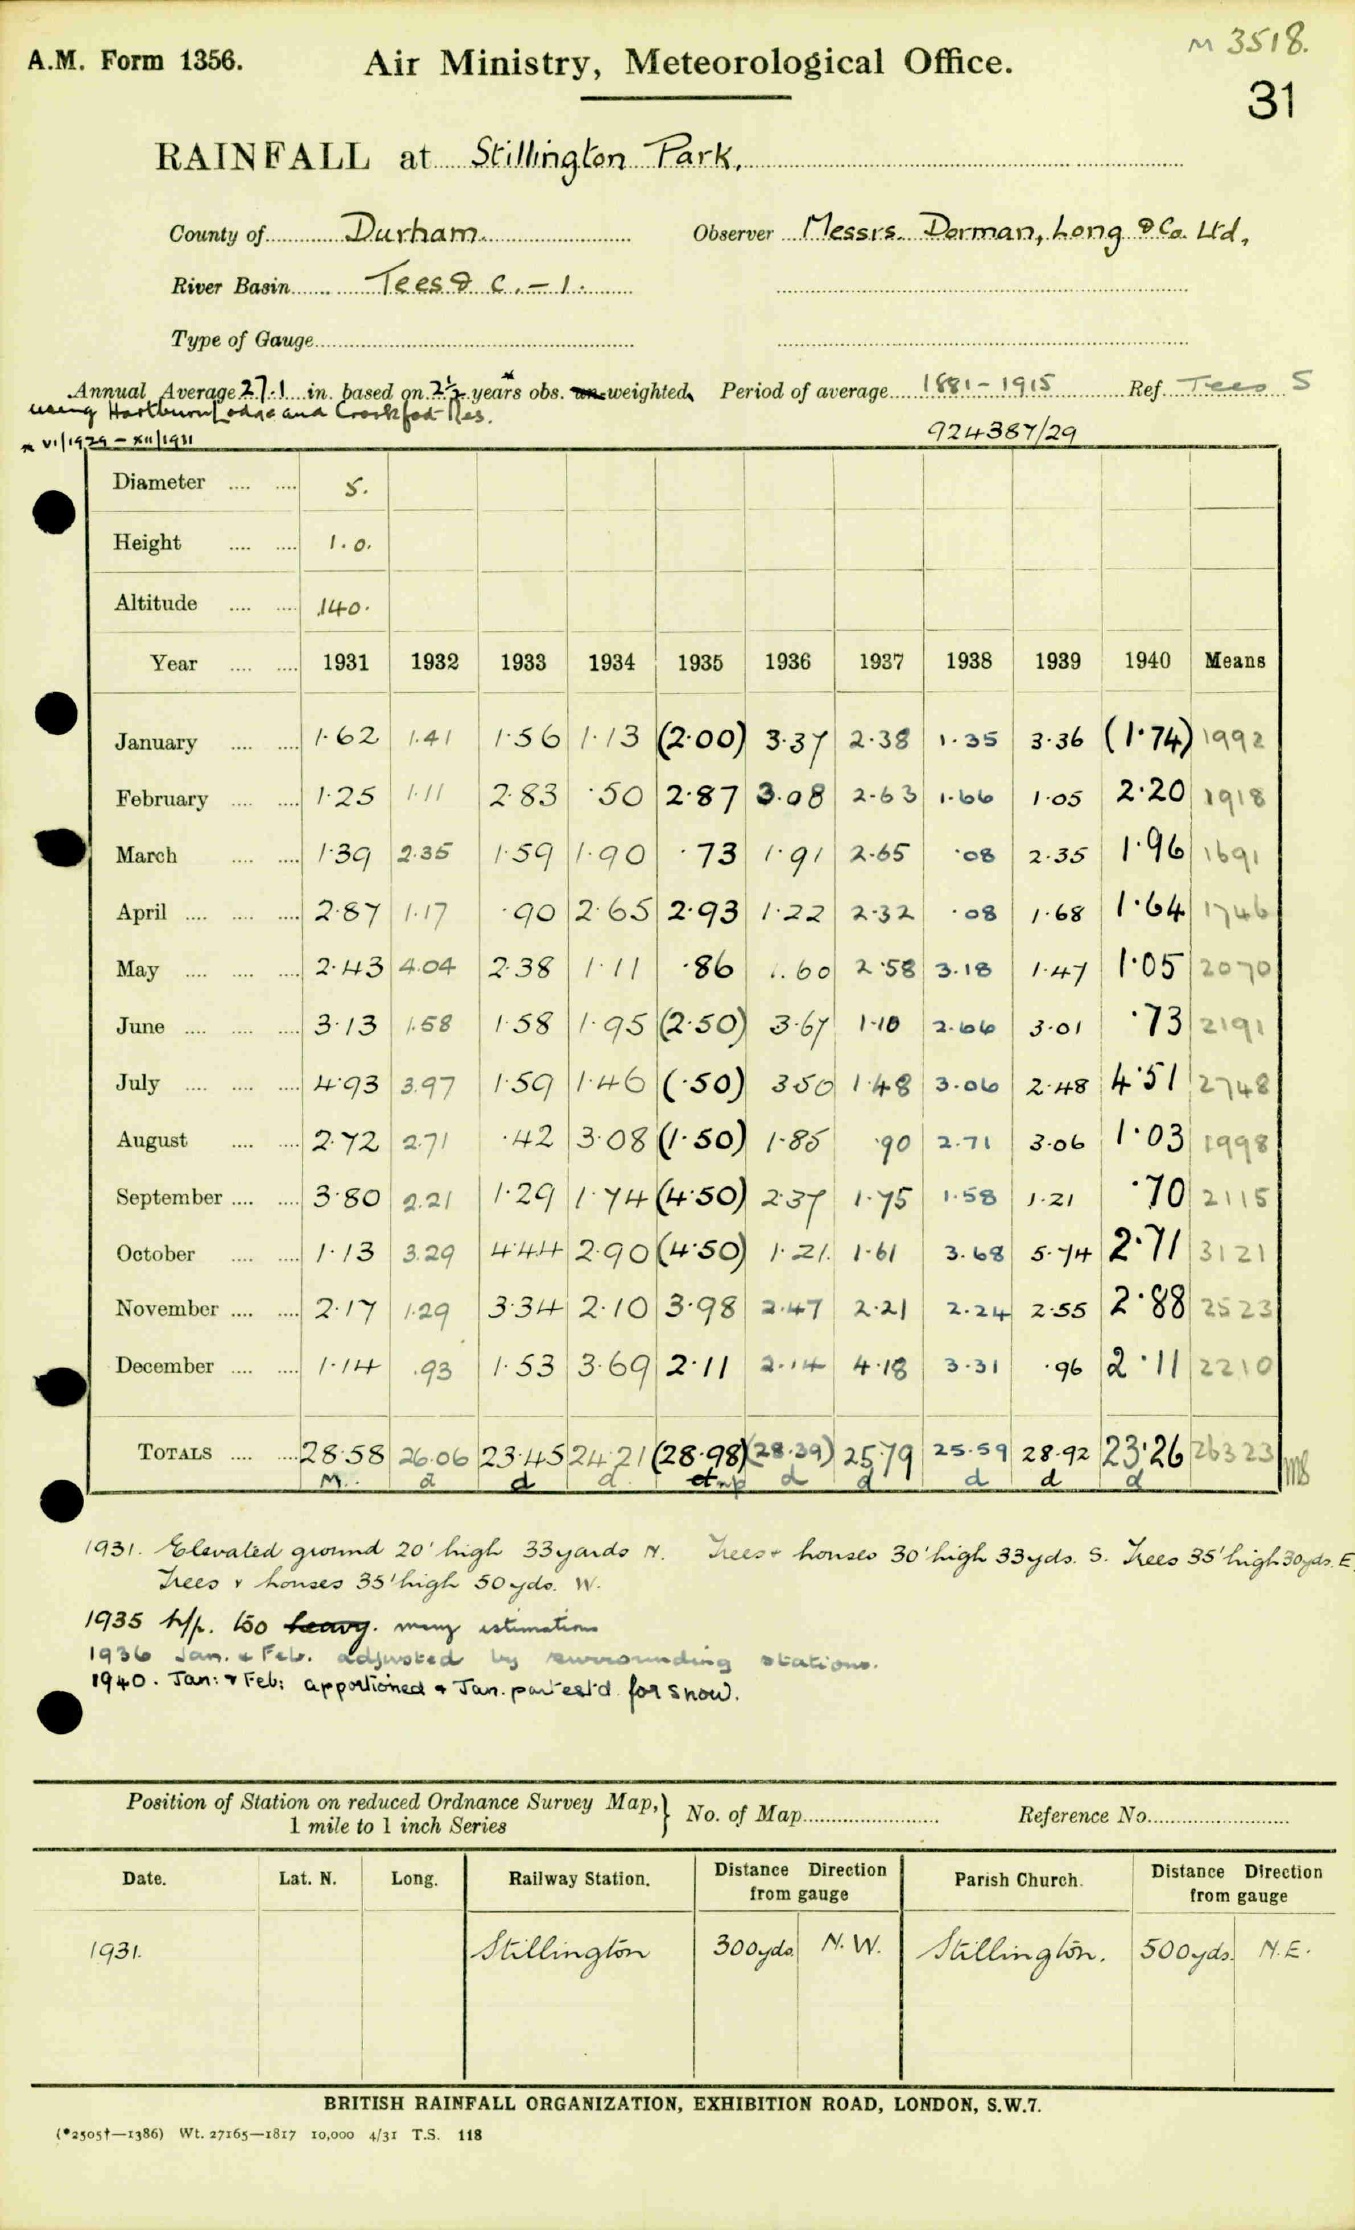 M 3518.
A.M. Form 1356. Air Ministry, Meteorological Office.
31
RAINFALL at Stillington Park,
County of Durham. Observer Messrs. Dorman, Long & Co. Ltd,
River Basin Tees & C. - 1.
Type of Gauge
Annual Average 27.1 in. based on 2½ years* obs. un-weighted, Period of average 1881-1915 Ref. Tees 5
using Hartburn Lodge and Crookfoot Res.
* VI/1929 - XII/1931 924387/29
Diameter 5.
Height 1.0.
Altitude 140.
Year 1931 1932 1933 1934 1935 1936 1937 1938 1939 1940 Means
January 1.62 1.41 1.56 1.13 (2.00) 3.37 2.38 1.35 3.36 (1.74) 1992
February 1.25 1.11 2.83 .50 2.87 3.08 2.63 1.66 1.05 2.20 1918
March 1.39 2.35 1.59 1.90 .73 1.91 2.65 .08 2.35 1.96 1691
April 2.87 1.17 .90 2.65 2.93 1.22 2.32 .08 1.68 1.64 1746
May 2.43 4.04 2.38 1.11 .86 1.60 2.58 3.18 1.47 1.05 2070
June 3.13 1.58 1.58 1.95 (2.50) 3.67 1.10 2.66 3.01 .73 2191
July 4.93 3.97 1.59 1.46 (.50) 3.50 1.48 3.06 2.48 4.51 2748
August 2.72 2.71 .42 3.08 (1.50) 1.85 .90 2.71 3.06 1.03 1998
September 3.80 2.21 1.29 1.74 (4.50) 2.37 1.75 1.58 1.21 .70 2115
October 1.13 3.29 4.44 2.90 (4.50) 1.21 1.61 3.68 5.74 2.71 3121
November 2.17 1.29 3.34 2.10 3.98 2.47 2.21 2.24 2.55 2.88 2523
December 1.14 .93 1.53 3.69 2.11 2.14 4.18 3.31 .96 2.11 2210
TOTALS 28.58 26.06 23.45 24.21 (28.98) (28.39) 25.79 25.59 28.92 23.26 26323
M. d d d d np d d d d d MB
1931. Elevated ground 20' high 33 yards N. Trees & houses 30' high 33 yds. S. Trees 35' high 30 yds. E.
Trees & houses 35' high 50 yds. W.
1935 too heavy. many estimations
1936 Jan. & Feb. adjusted by surrounding stations.
1940. Jan: & Feb: apportioned & Jan. part est'd for snow.
Position of Station on reduced Ordnance Survey Map,
1 mile to 1 inch Series } No. of Map Reference No.
Date. Lat. N. Long. Railway Station. Distance Direction from gauge Parish Church. Distance Direction from gauge
1931. Stillington 300 yds. N.W. Stillington. 500 yds. N.E.
BRITISH RAINFALL ORGANIZATION, EXHIBITION ROAD, LONDON, S.W.7.
(*2505†—1386) Wt. 27165—1817 10,000 4/31 T.S. 118